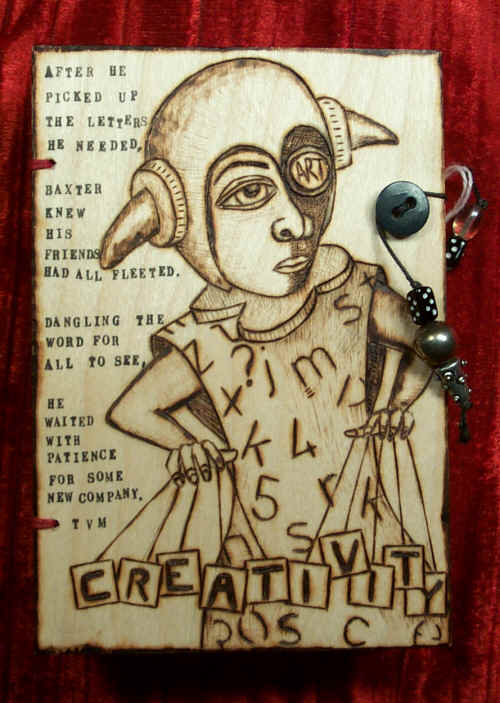 AFTER HE
PICKED UP
THE LETTERS
HE NEEDED,
BAXTER
KNEW
HIS
FRIENDS
HAD ALL FLEETED.
DANGLING THE
WORD FOR
ALL TO SEE,
HE
WAITED
WITH
PATIENCE
FOR SOME
NEW COMPANY.
TVM
ART
S X
Z ? j m
x
k 4
5 r k
n s
CREATIVITY